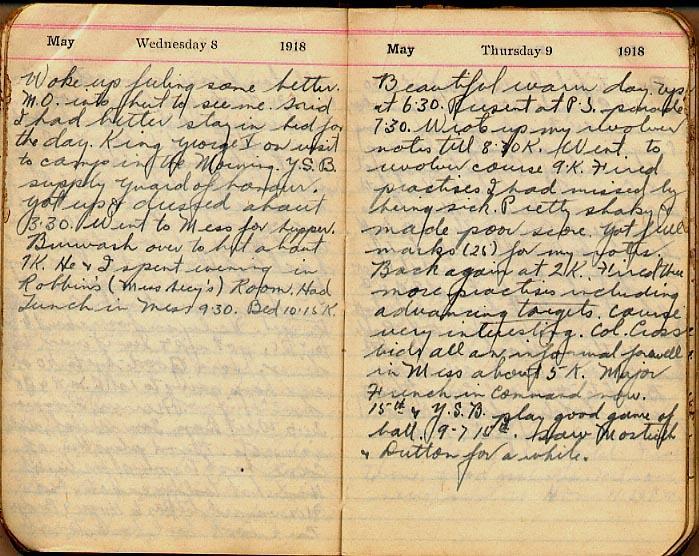 May Wednesday 8 1918
Woke up feeling some better.
M.O. into hut to see me. Said
I had better stay in bed for
the day. King George V on visit
to camp in the Morning. Y.S.B.
supply guard of honour.
Got up & dressed about
3.30. Went to Mess for supper.
Burwash over to hut about
7K. He & I spent evening in
Robbins (Mess Secy's) Room. Had
Lunch in Mess 9.30. Bed 10.15 K.
May Thursday 9 1918
Beautiful warm day. Up
at 6.30. Present at P.S. parade
7.30. Wrote up my revolver
notes till 8.30K. Went to
revolver course 9K. Fired
practises I had missed by
being sick. Pretty shaky &
made poor score. Got full
marks (25) for my notes.
Back again at 2K. Fired three
more practises including
advancing targets. Course
very interesting. Col. Cross
bids all an informal farewell
in Mess about 5 K. Major
French in Command now.
15th & Y.S.B. play good game of
ball. 9-7 15th. Saw
& Dutton for a while.